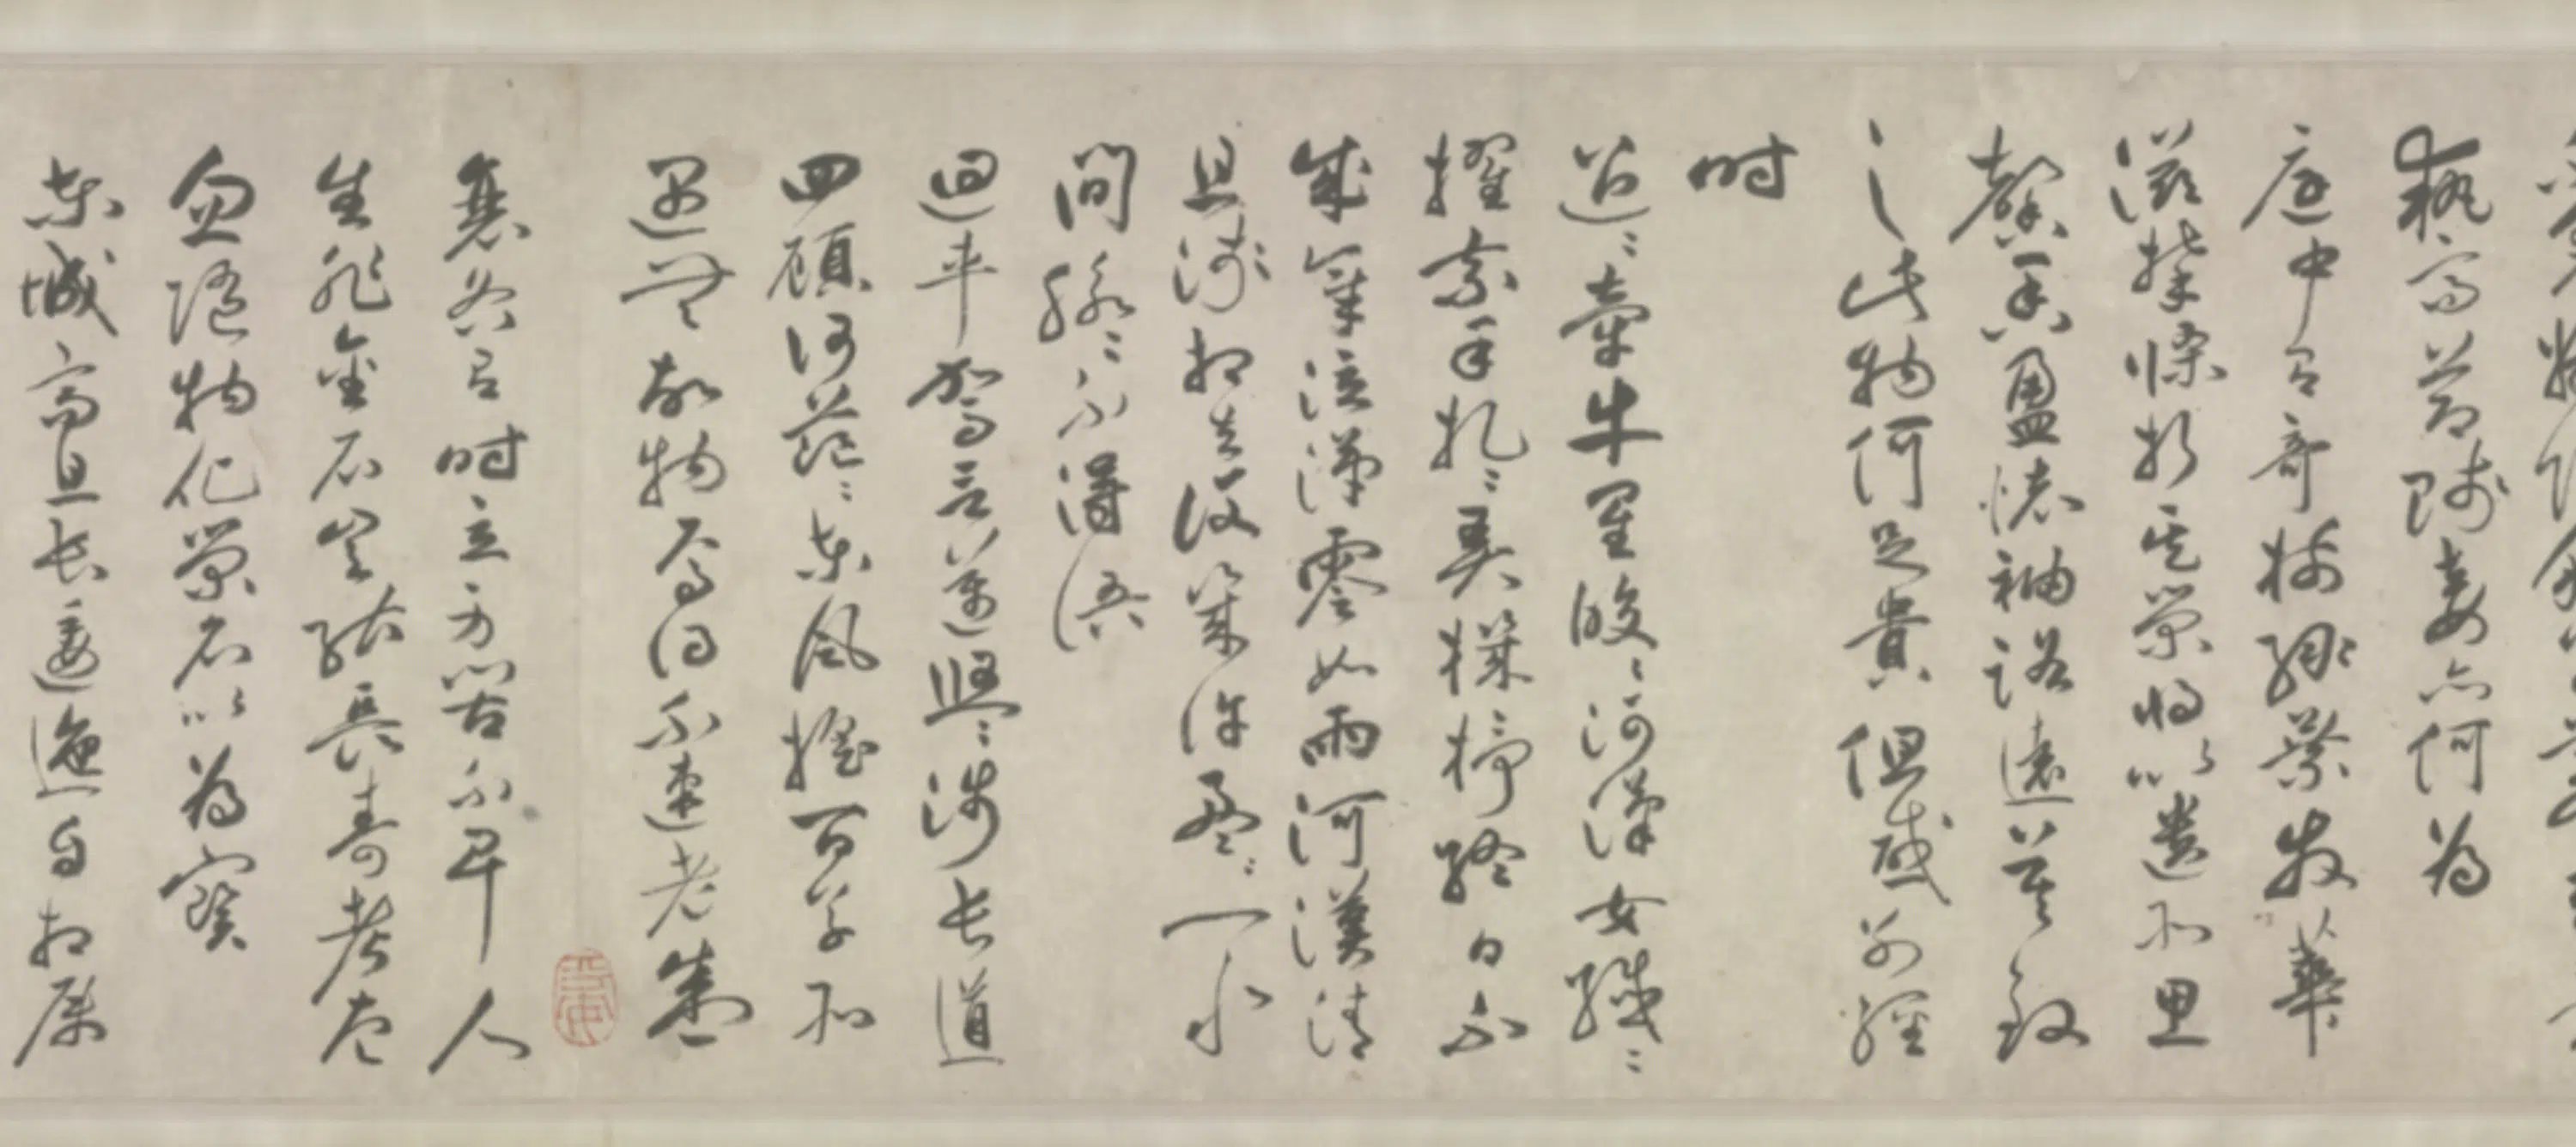 執高節賤妾亦何為
庭中有奇樹綠葉發華
滋攀條折其榮將以遺所思
馨香盈懷袖路遠莫致
之此物何足貴但感別經
時
迢〻牽牛星皎〻河漢女纖〻
擢素手札〻弄機杼終日不
成章泣涕零如雨河漢清
且淺相去復幾許盈〻一水
間脉〻不得語
迴車駕言邁悠〻涉長道
四顧何茫〻東風搖百草所
遇無故物焉得不速老盛
衰各有時立身苦不早人
生非金石豈能長壽考奄
忽隨物化榮名以為寶
東城高且長逶迤自相屬